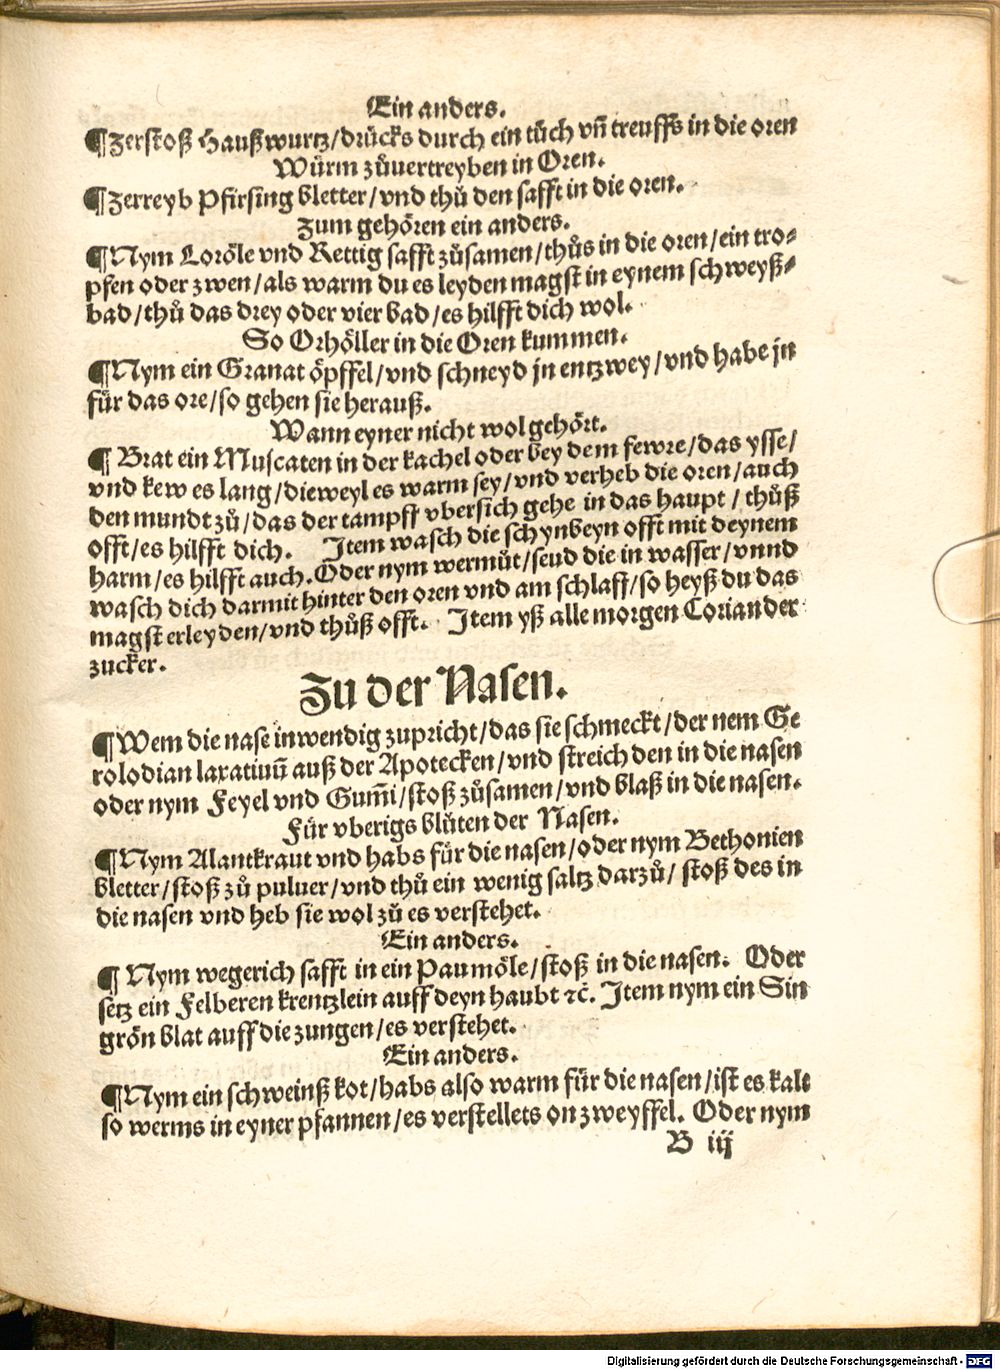 Ein anders.
¶Zerstoß Haußwurtz/drücks durch ein tůch vn̄ treuffs in die oren
Würm zůuertreyben in Oren.
¶Zerreyb Pfirsing bletter/vnd thů den safft in die oren.
Zum gehören ein anders.
¶Nym Loröle vnd Rettig safft zůsamen/thůs in die oren/ein tro⸗
pfen oder zwen/als warm du es leyden magst in eynem schweyß⸗
bad/thů das drey oder vier bad/es hilfft dich wol.
So Orhöller in die Oren kummen.
¶Nym ein Granat öpffel/vnd schneyd jn entzwey/vnd habe jn
für das ore/so gehen sie herauß.
Wann eyner nicht wol gehört.
¶ Brat ein Muscaten in der kachel oder bey dem fewre/das ysse/
vnd kew es lang/dieweyl es warm sey/vnd verheb die oren/auch
den mundt zů/das der tampff vbersich gehe in das haupt/thůß
offt/es hilfft dich. Item wasch die schynbeyn offt mit deynem
harm/es hilfft auch. Oder nym wermůt/seud die in wasser/vnnd
wasch dich darmit hinter den oren vnd am schlaff/so heyß du das
magst erleyden/vnd thůß offt. Item yß alle morgen Coriander
zucker.
Zu der Nasen.
¶Wem die nase inwendig zupricht/das sie schmeckt/der nem Ge
rolodian laxatiuū auß der Apotecken/vnd streich den in die nasen
oder nym Feyel vnd Gum̄i/stoß zůsamen/vnd blaß in die nasen.
Für vberigs blůten der Nasen.
¶Nym Alantkraut vnd habs für die nasen/oder nym Bethonien
bletter/stoß zů puluer/vnd thů ein wenig saltz darzů/stoß des in
die nasen vnd heb sie wol zů es verstehet.
Ein anders.
¶ Nym wegerich safft in ein Paumöle/stoß in die nasen. Oder
setz ein Felberen krentzlein auff deyn haubt ⁊c̄. Item nym ein Sin
grön blat auff die zungen/es verstehet.
Ein anders.
¶Nym ein schweinß kot/habs also warm für die nasen/ist es kalt
so werms in eyner pfannen/es verstellets on zweyffel. Oder nym
B iij
Digitalisierung gefördert durch die Deutsche Forschungsgemeinschaft - DFG